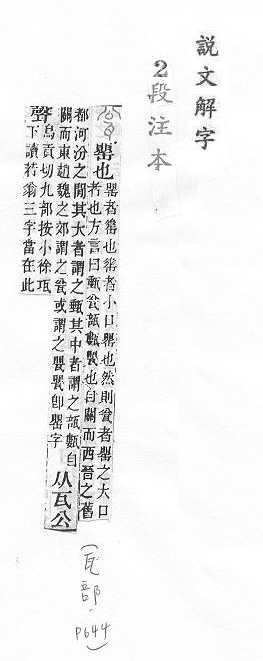 說文解字
2段注本
瓮 罌也 罌者䍌也䍌者小口罌也然則瓮者罌之大口
者也方言曰甀瓮瓿甊甖也自關而西晉之舊
都河汾之閒其大者謂之甀其中者謂之瓿甊自
關而東趙魏之郊謂之瓮或謂之甖甖卽罌字 从瓦公
聲 烏貢切九部按小徐瓨
下讀若翁三字當在此
(瓦部. P644)